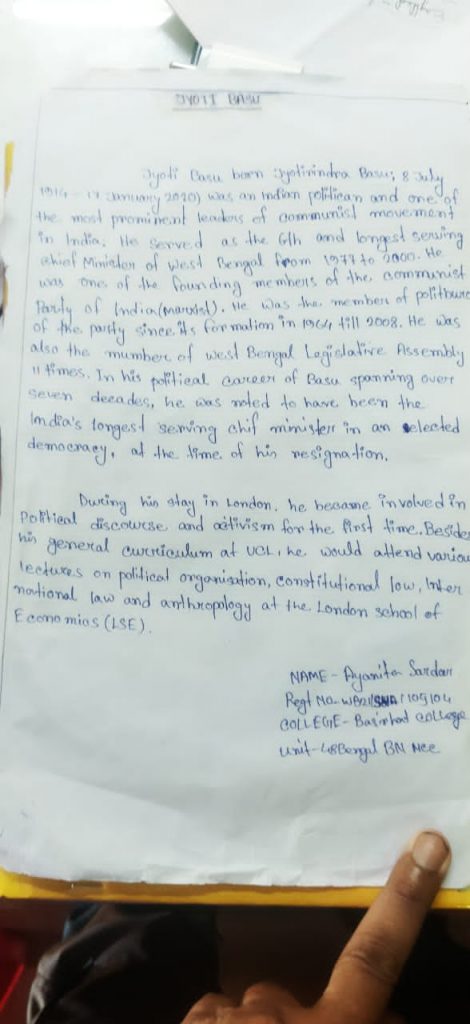 JYOTI BASU
Jyoti Basu born Jyotirindra Basu; 8 July
1914 - 17 January 2010) was an Indian politican and one of
the most prominent leaders of communist movement
in India. He served as the 6th and longest serving
chief Minister of West Bengal from 1977 to 2000. He
was one of the founding members of the communist
Party of India (Marxist). He was the member of politburo
of the party since its formation in 1964 till 2008. He was
also the mumber of west Bengal Legislative Assembly
11 times. In his political career of Basu spanning over
seven decades, he was noted to have been the
India's longest serving chif minister in an elected
democracy, at the time of his resignation.
During his stay in London, he became involved in
Political discourse and activism for the first time. Besides
his general curriculum at UCL, he would attend various
lectures on political organisation, constitutional low, Inter
national law and anthropology at the London school of
Economios (LSE).
NAME - Sardar
Regt No -
COLLEGE - Basirhat college
Unit - 48 Bengal BN Ncc